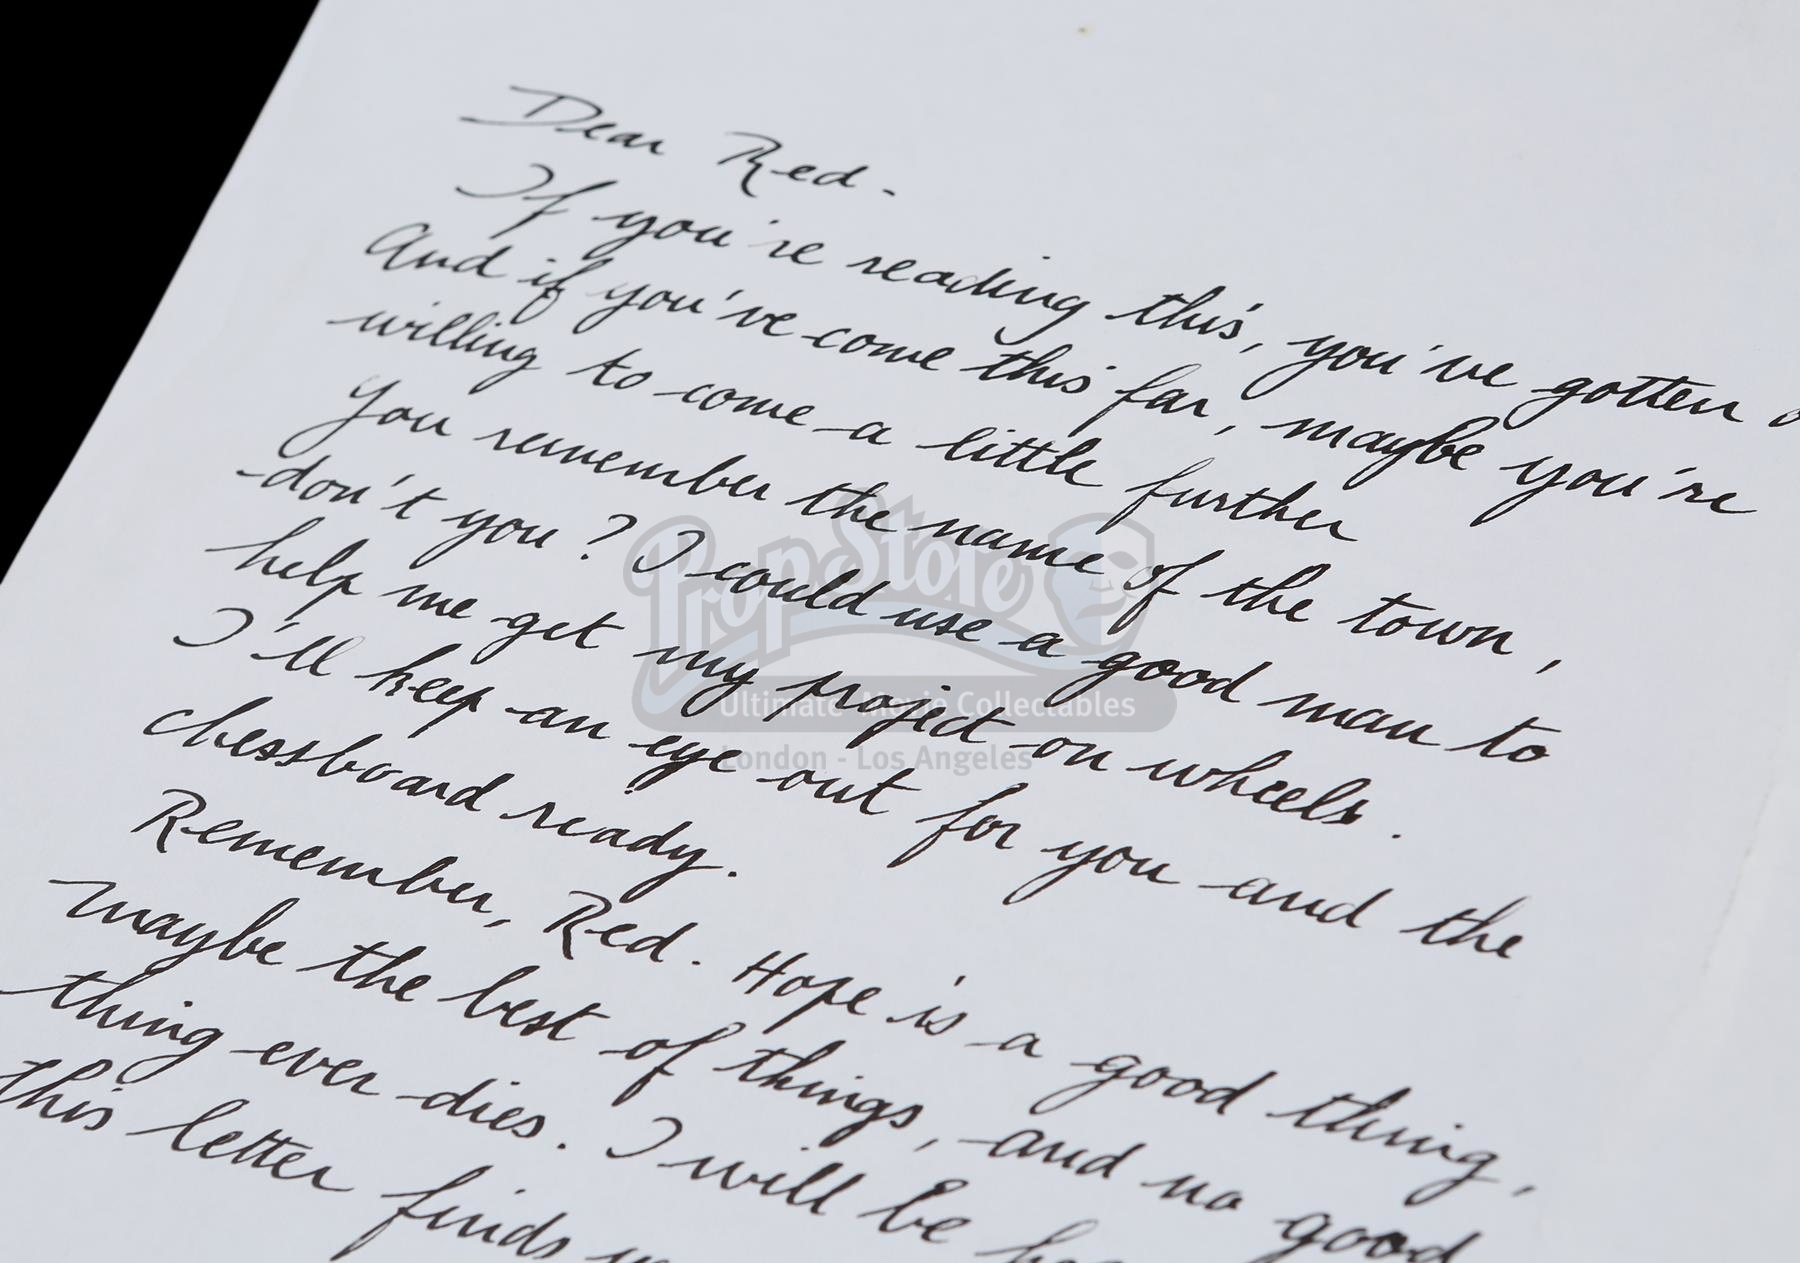 Dear Red.
If you're reading this, you've gotten
And if you've come this far, maybe you're
willing to come a little further
you remember the name of the town,
don't you? I could use a good man to
help me get my project on wheels.
I'll keep an eye out for you and the
chessboard ready.
Remember, Red. Hope is a good thing,
maybe the best of things, and no good
thing ever dies. I will be
this letter finds
PropStore
Ultimate Movie Collectables
London - Los Angeles